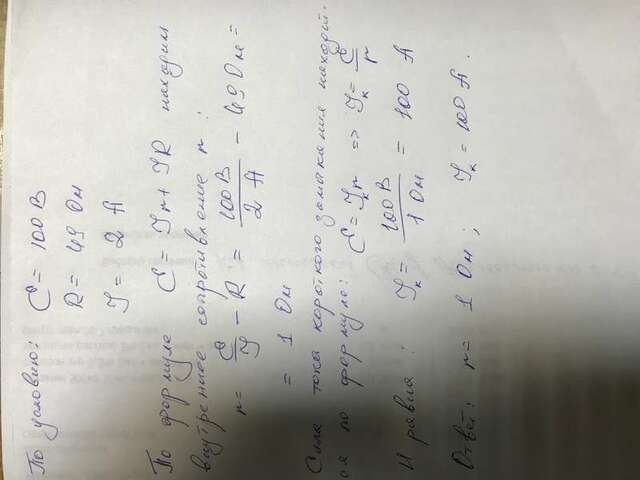 По условию: Ɛ = 100 В
R = 49 Ом
J = 2 А
По формуле Ɛ = Jr + JR находим
внутреннее сопротивление r:
r = Ɛ/J − R = 100 В/2 А − 49 Ом =
= 1 Ом
Сила тока короткого замыкания находит-
ся по формуле: Ɛ = Jкr => Jк = Ɛ/r
И равна: Jк = 100 В/1 Ом = 100 А
Ответ: r = 1 Ом; Jк = 100 А.